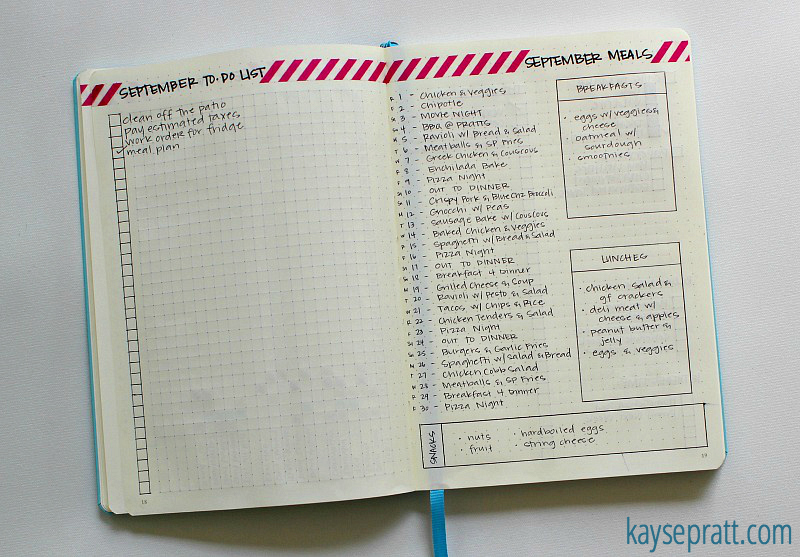 SEPTEMBER TO·DO LIST
clean off the patio
pay estimated taxes
work order for fridge
meal plan
18
SEPTEMBER MEALS
R 1 - Chicken & Veggies
F 2 - Chipotle
S 3 - Movie NIGHT
Su 4 - BBQ @ PRATTS
M 5 - Ravioli w/ Bread & Salad
T 6 - Meatballs & SP Fries
W 7 - Greek Chicken & Couscous
R 8 - Enchilada Bake
F 9 - Pizza Night
S 10 - OUT TO DINNER
Su 11 - Crispy Pork & Blue Chz Broccoli
M 12 - Gnocchi w/ Peas
T 13 - Sausage Bake w/ Couscous
W 14 - Baked Chicken & Veggies
R 15 - Spaghetti w/ Bread & Salad
F 16 - Pizza Night
S 17 - OUT TO DINNER
Su 18 - Breakfast 4 Dinner
M 19 - Grilled Cheese & Soup
T 20 - Ravioli w/ Pesto & Salad
W 21 - Tacos w/ Chips & Rice
R 22 - Chicken Tenders & Salad
F 23 - Pizza Night
S 24 - OUT TO DINNER
Su 25 - Burgers & Garlic Fries
M 26 - Spaghetti w/ Salad & Bread
T 27 - Chicken Cobb Salad
W 28 - Meatballs & SP Fries
R 29 - Breakfast 4 Dinner
F 30 - Pizza Night
BREAKFASTS
· eggs w/ veggies &
cheese
· oatmeal w/
sourdough
· smoothies
LUNCHES
· chicken salad &
gf crackers
· deli meat w/
cheese & apples
· peanut butter &
jelly
· eggs & veggies
SNACKS
· nuts
· fruit
· hardboiled eggs
· string cheese
19
kaysepratt.com